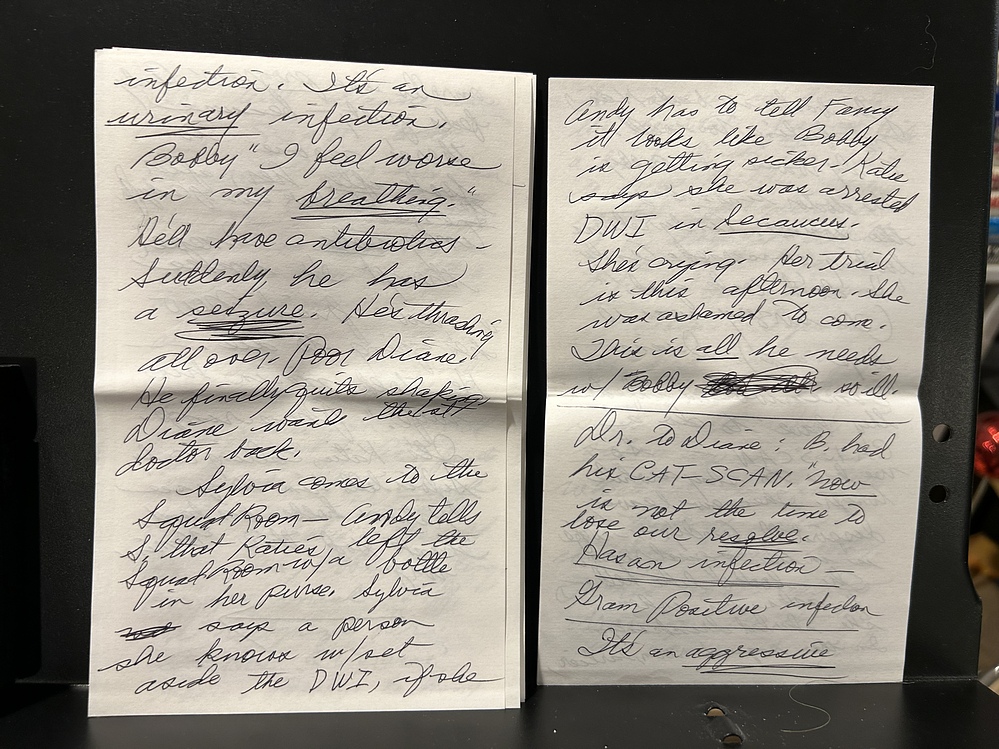 infection. It's an
urinary infection.
Bobby "I feel worse
in my breathing."
He'll have antibiotics –
Suddenly he has
a seizure. He's thrashing
all over. Poor Diane.
He finally quits shaking
Diane wants that
doctor back.
Sylvia comes to the
Squad Room – Andy tells
S, that Katie's, left the
Squad Room w/a bottle
in her purse. Sylvia
says a person
she knows w/set
aside the DWI, if she
Andy has to tell Fancy
it looks like Bobby
is getting sicker. Katie
says she was arrested
DWI in Secaucus.
She's crying. Her trial
is this afternoon. She
was ashamed to come.
This is all he needs
w/ Bobby so ill.
Dr. to Diane: B. had
his CAT-SCAN. "now
is not the time to
lose our resolve.
Has an infection –
Gram Positive infection
It's an aggressive